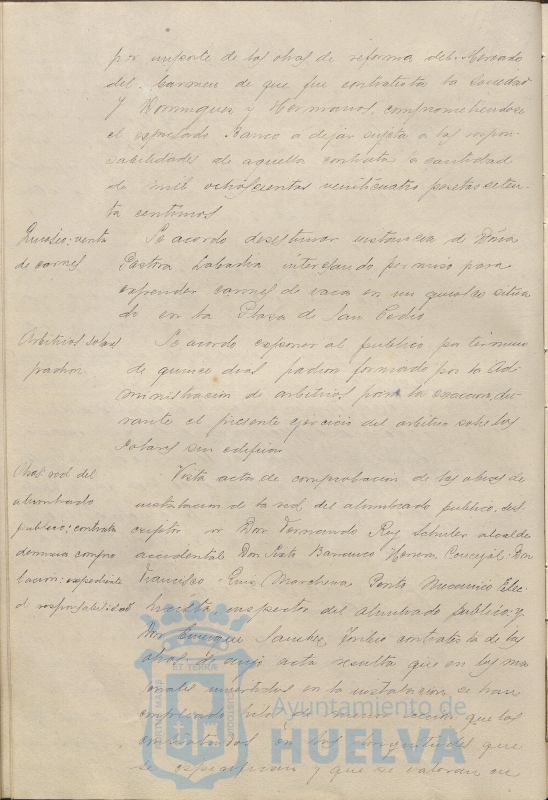 por importe de las obras de reforma del Mercado
del Carmen de que fue contratista la Sociedad
y Dominguez y Hermanos, comprometiendose
el expresado Banco a dejar sujeta a las respon-
sabilidades de aquella contrata la cantidad
de mil ochocientas veinticuatro pesetas
ta centimos
Quiosco: venta
de carnes
Se acordó desestimar instancia de Doña
Pastora Labastia interesando permiso para
expender carnes de vaca en un quiosco situa
do en la Plaza de San Pedro
Arbitrios solares
padron
Se acordó exponer al publico por termino
de quince dias padron formado por la Ad-
ministracion de arbitrios para la exaccion, du-
rante el presente ejercicio del arbitrio sobre los
solares sin edificar
Obras red del
alumbrado
publico: contrata
denuncia compro
bacion: expediente
responsabilidad
Vista acta de comprobacion de las obras de
instalacion de la red del alumbrado publico, sus-
cripta por Don Fernando Rey Schuler alcalde
accidental Don Sixto Barranco Herrera, Concejal Don
Francisco Ruiz Marchena Perito Mecanico Elec-
tricista inspector del alumbrado publico y
Don Enrique Sanchez Toribio contratista de las
obras de cuya acta resulta que en los ma
teriales invertidos en la instalacion se han
empleado hilos de menor seccion que los
contratados en las longitudes que
se especifican y que se valoran en
PORTUS MARIS
ET TERRÆ
CUSTODIA
Ayuntamiento de
HUELVA